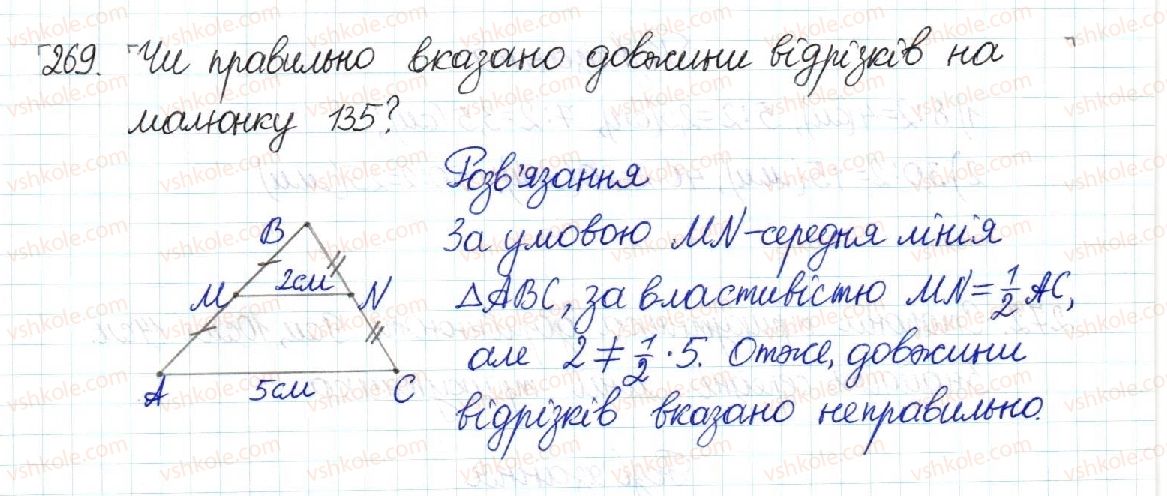 269. Чи правильно вказано довжини відрізків на
малюнку 135?
Розв'язання
За умовою MN-середня лінія
△ABC, за властивістю MN=1/2 AC,
але 2≠1/2·5. Отже, довжини
відрізків вказано неправильно.
B
2см
M
N
A
5см
C
vshkole.com